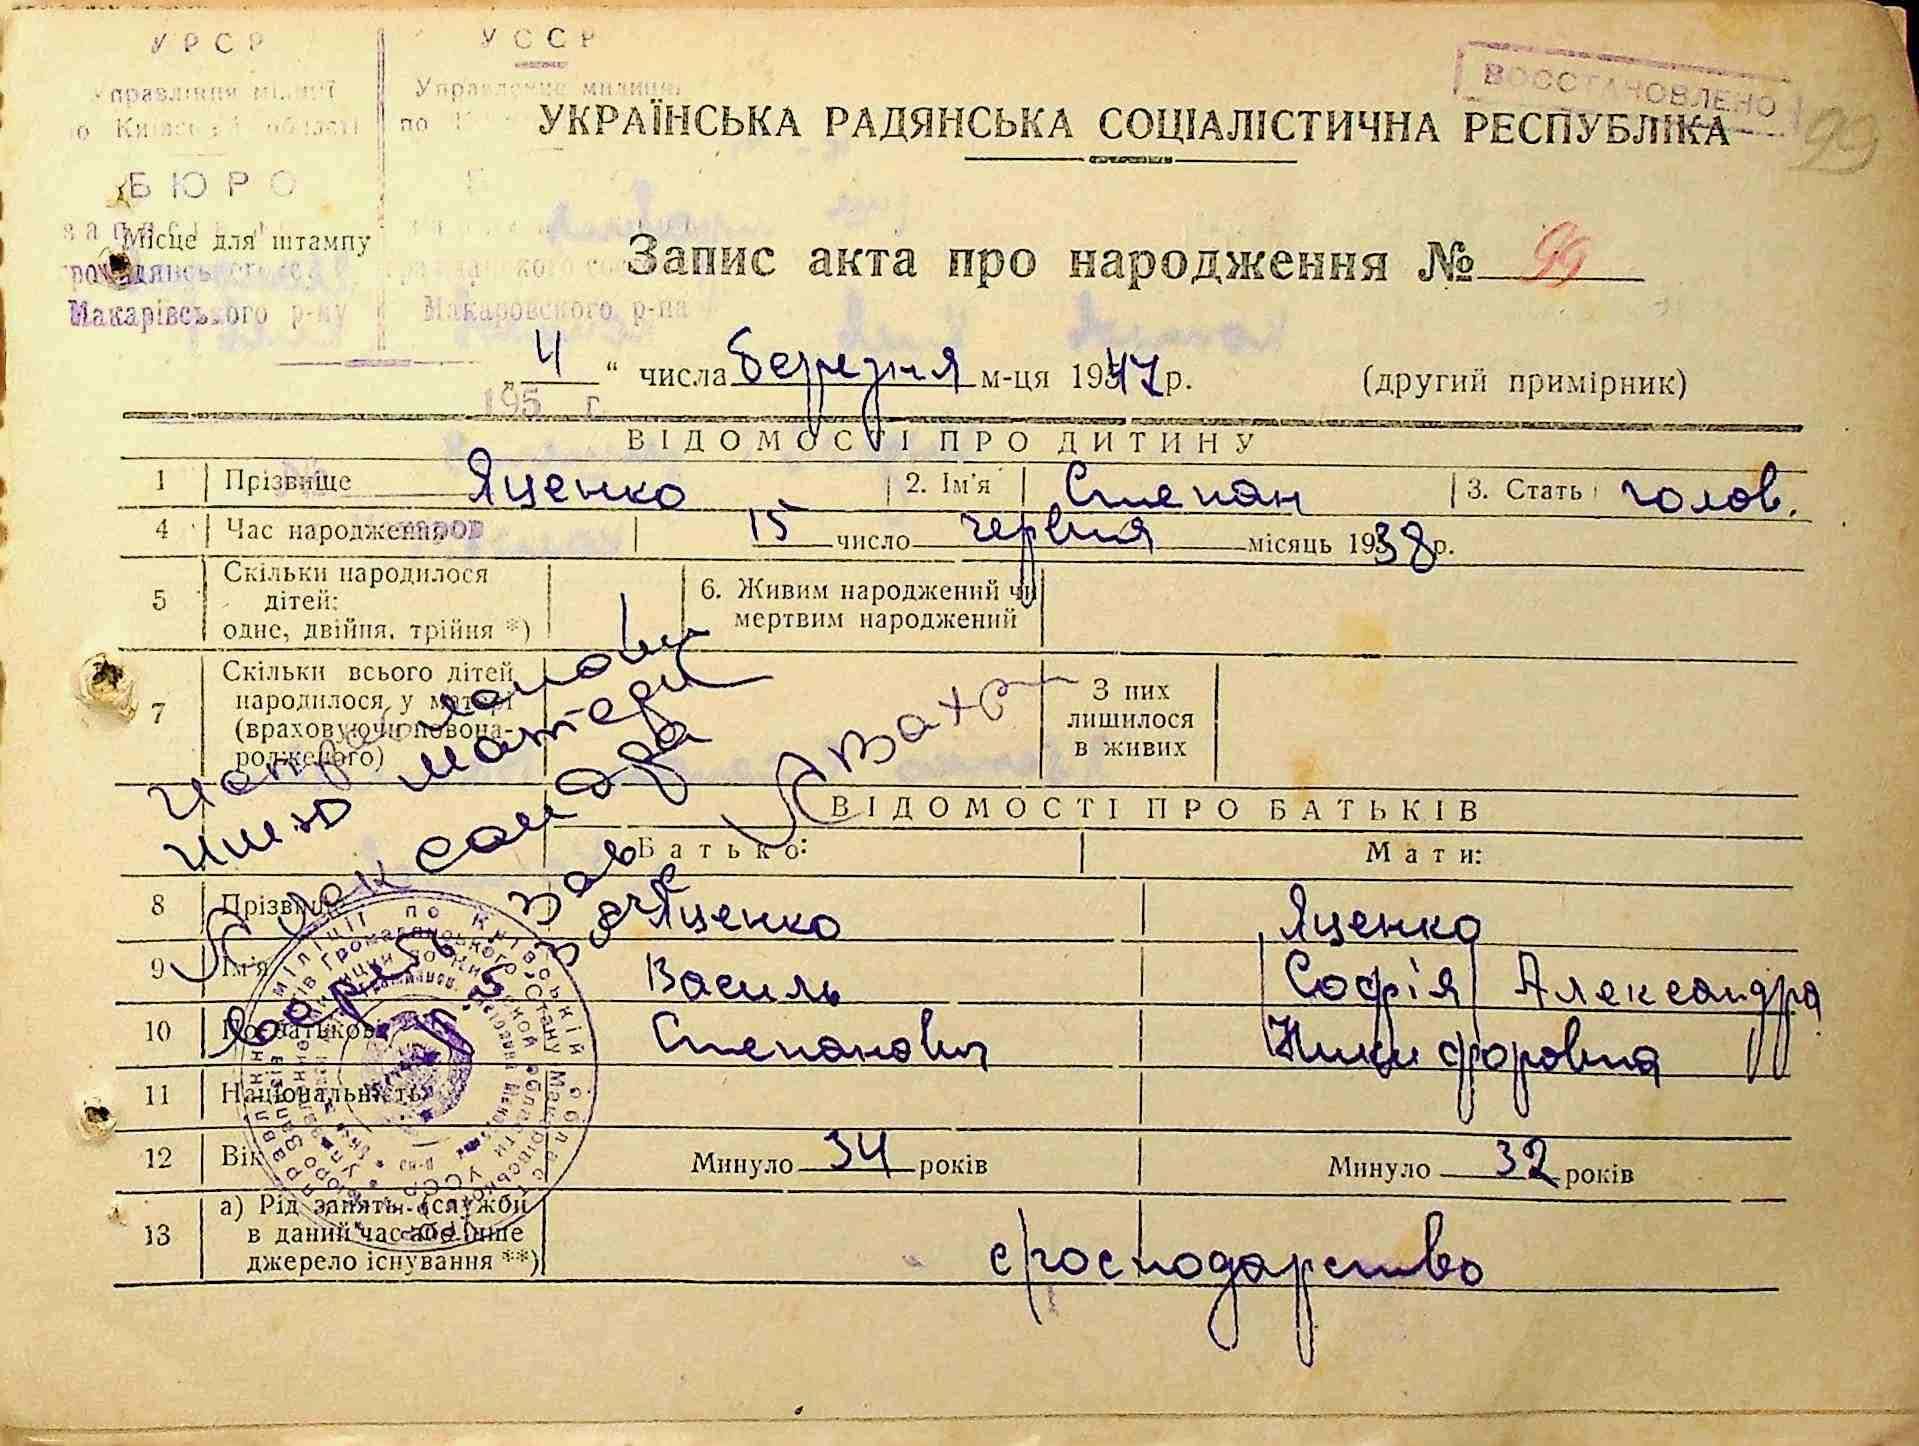 УРСР
Управління міліції
по Київській області
БЮРО
записів
громадянськ. стану
Макарівського р-ну
УССР
Управление милиции
по
гражданского сост.
Макаровского р-на
195 г.
ВОССТАНОВЛЕНО
99
УКРАЇНСЬКА РАДЯНСЬКА СОЦІАЛІСТИЧНА РЕСПУБЛІКА
Місце для штампу
Запис акта про народження № 99
„4“ числа березня м-ця 1947 р. (другий примірник)
ВІДОМОСТІ ПРО ДИТИНУ
1 Прізвище Яценко 2. Ім'я Степан 3. Стать чолов.
4 Час народження 15 число червня місяць 1938 р.
5 Скільки народилося
дітей:
одне, двійня, трійня *)
6. Живим народжений чи
мертвим народжений
7 Скільки всього дітей
народилося у матері
(враховуючи новона-
родженого)
З них
лишилося
в живих
ВІДОМОСТІ ПРО БАТЬКІВ
Батько: Мати:
8 Прізвище Яценко Яценко
9 Ім'я Василь Софія Александра
10 По батькові Степанович Никифоровна
11 Національність
12 Вік Минуло 34 років Минуло 32 років
13 а) Рід занять (служби
в даний час або інше
джерело існування **)
с/господарство
имя матери
Александра